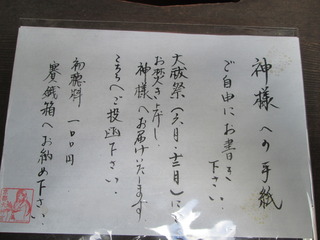 神様への手紙
ご自由にお書き
下さい。
大祓祭(六月・十二月)に
お焚き上げし
神様へお届けいたします
こちらへご投函下さい。
初穂料 一〇〇円
賽銭箱へお納め下さい。